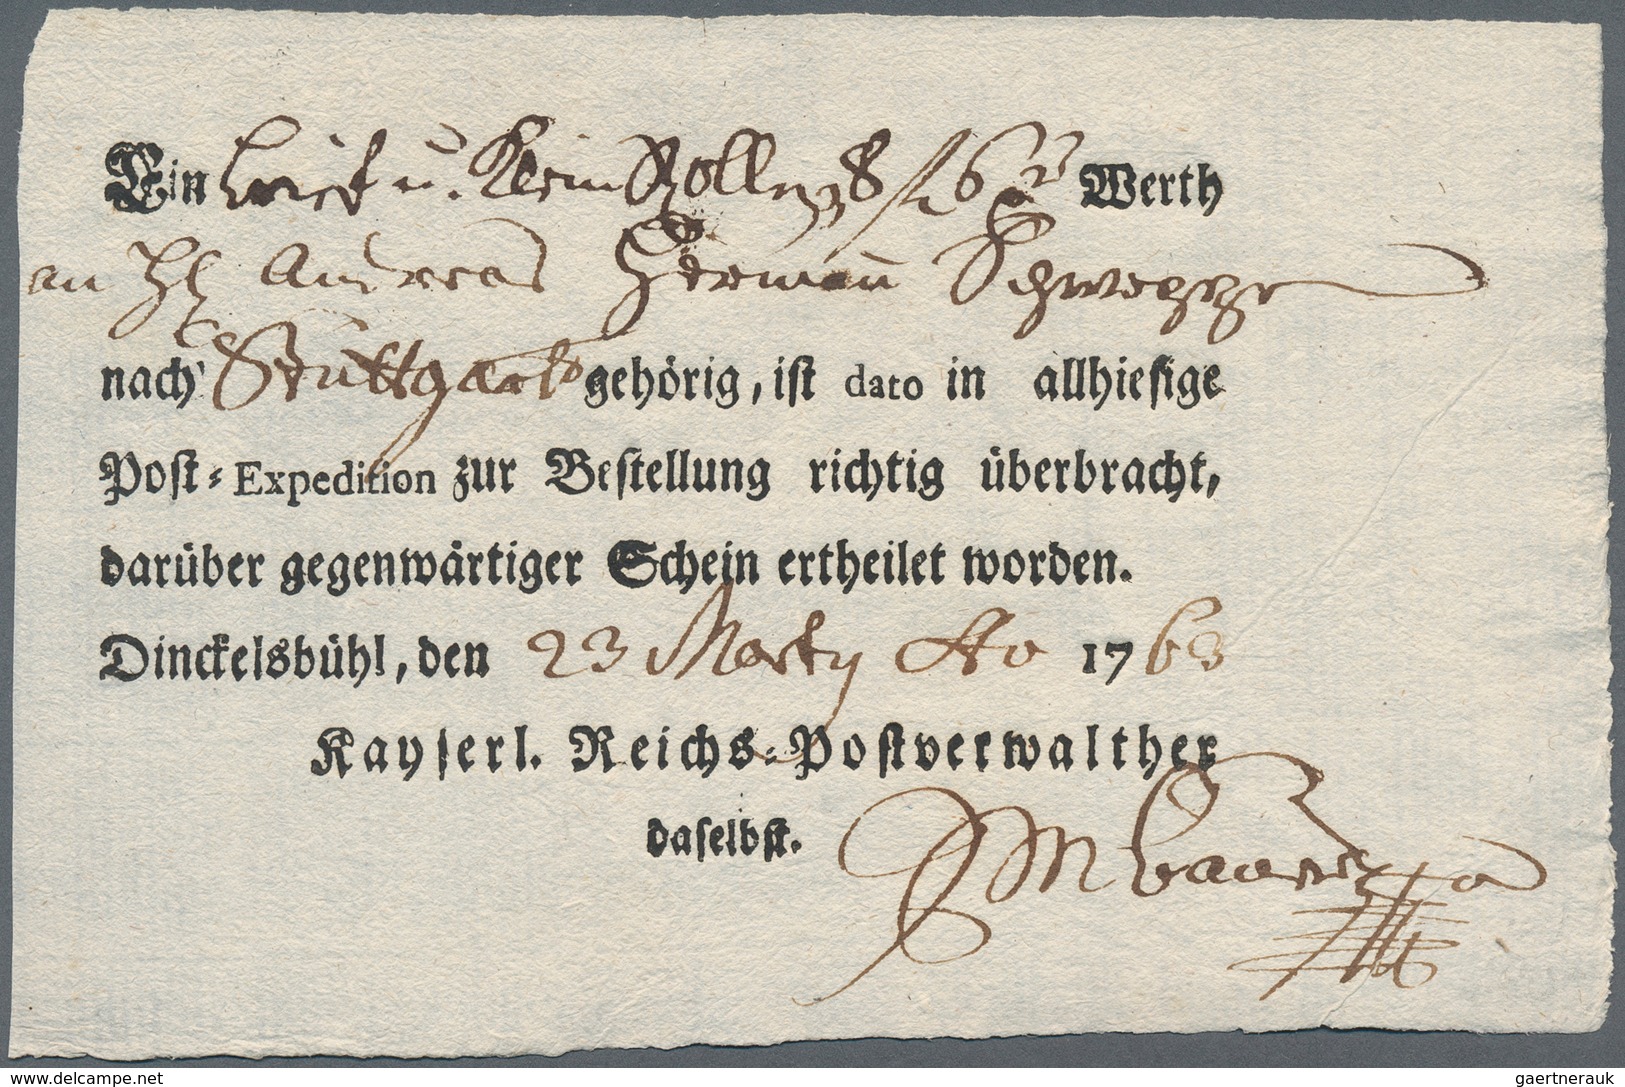 Ein brief u. klein Rolle Werth
an Andreas Herman Schweppe
nach Stuttgart gehörig, ist dato in allhiesige
Post-Expedition zur Bestellung richtig überbracht,
darüber gegenwärtiger Schein ertheilet worden.
Dinckelsbühl, den 23 Marty Ao 1763
Kayserl. Reichs-Postverwalther
daselbst.
www.delcampe.net
gaertnerauk